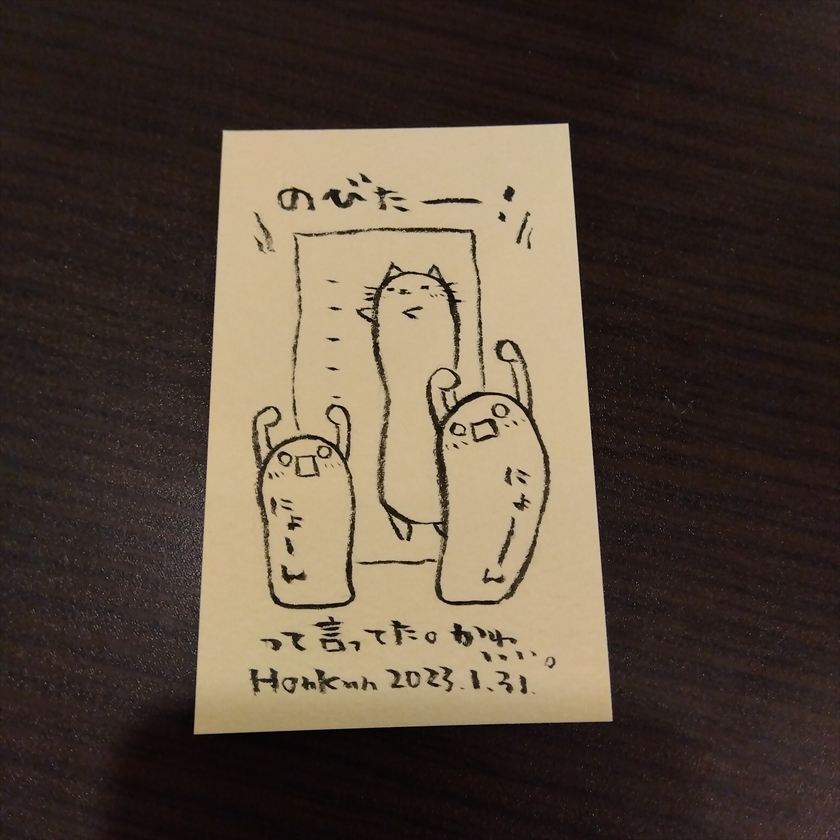 のびたー!
にょーん
にょーん
って言ってた。かわいい。
Honkun 2023.1.31.